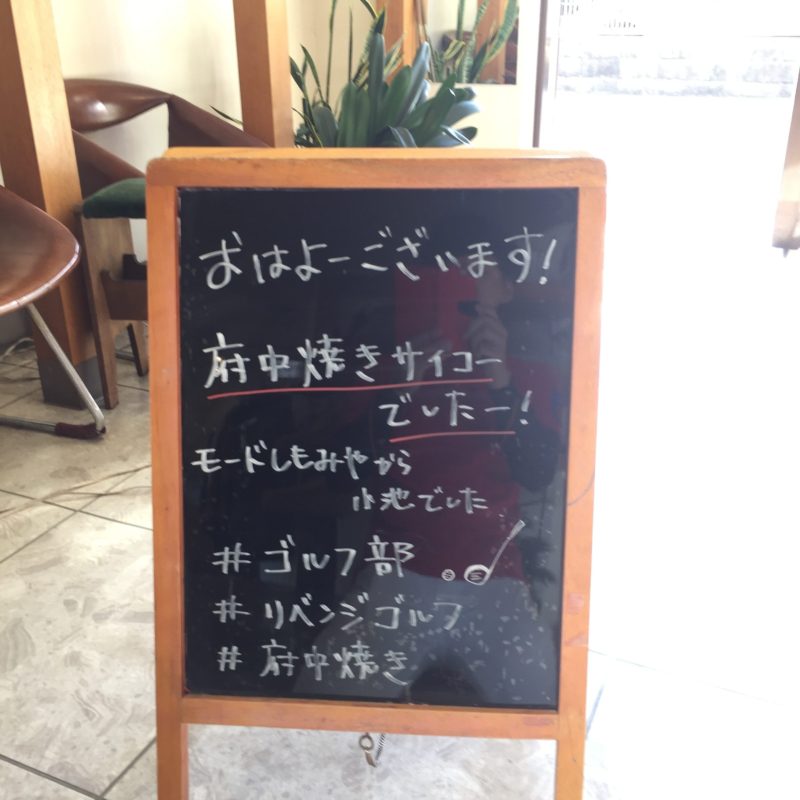 おはよーございます!
府中焼きサイコー
でしたー!
モードしもみやから
小池でした
#ゴルフ部
#リベンジゴルフ
#府中焼き